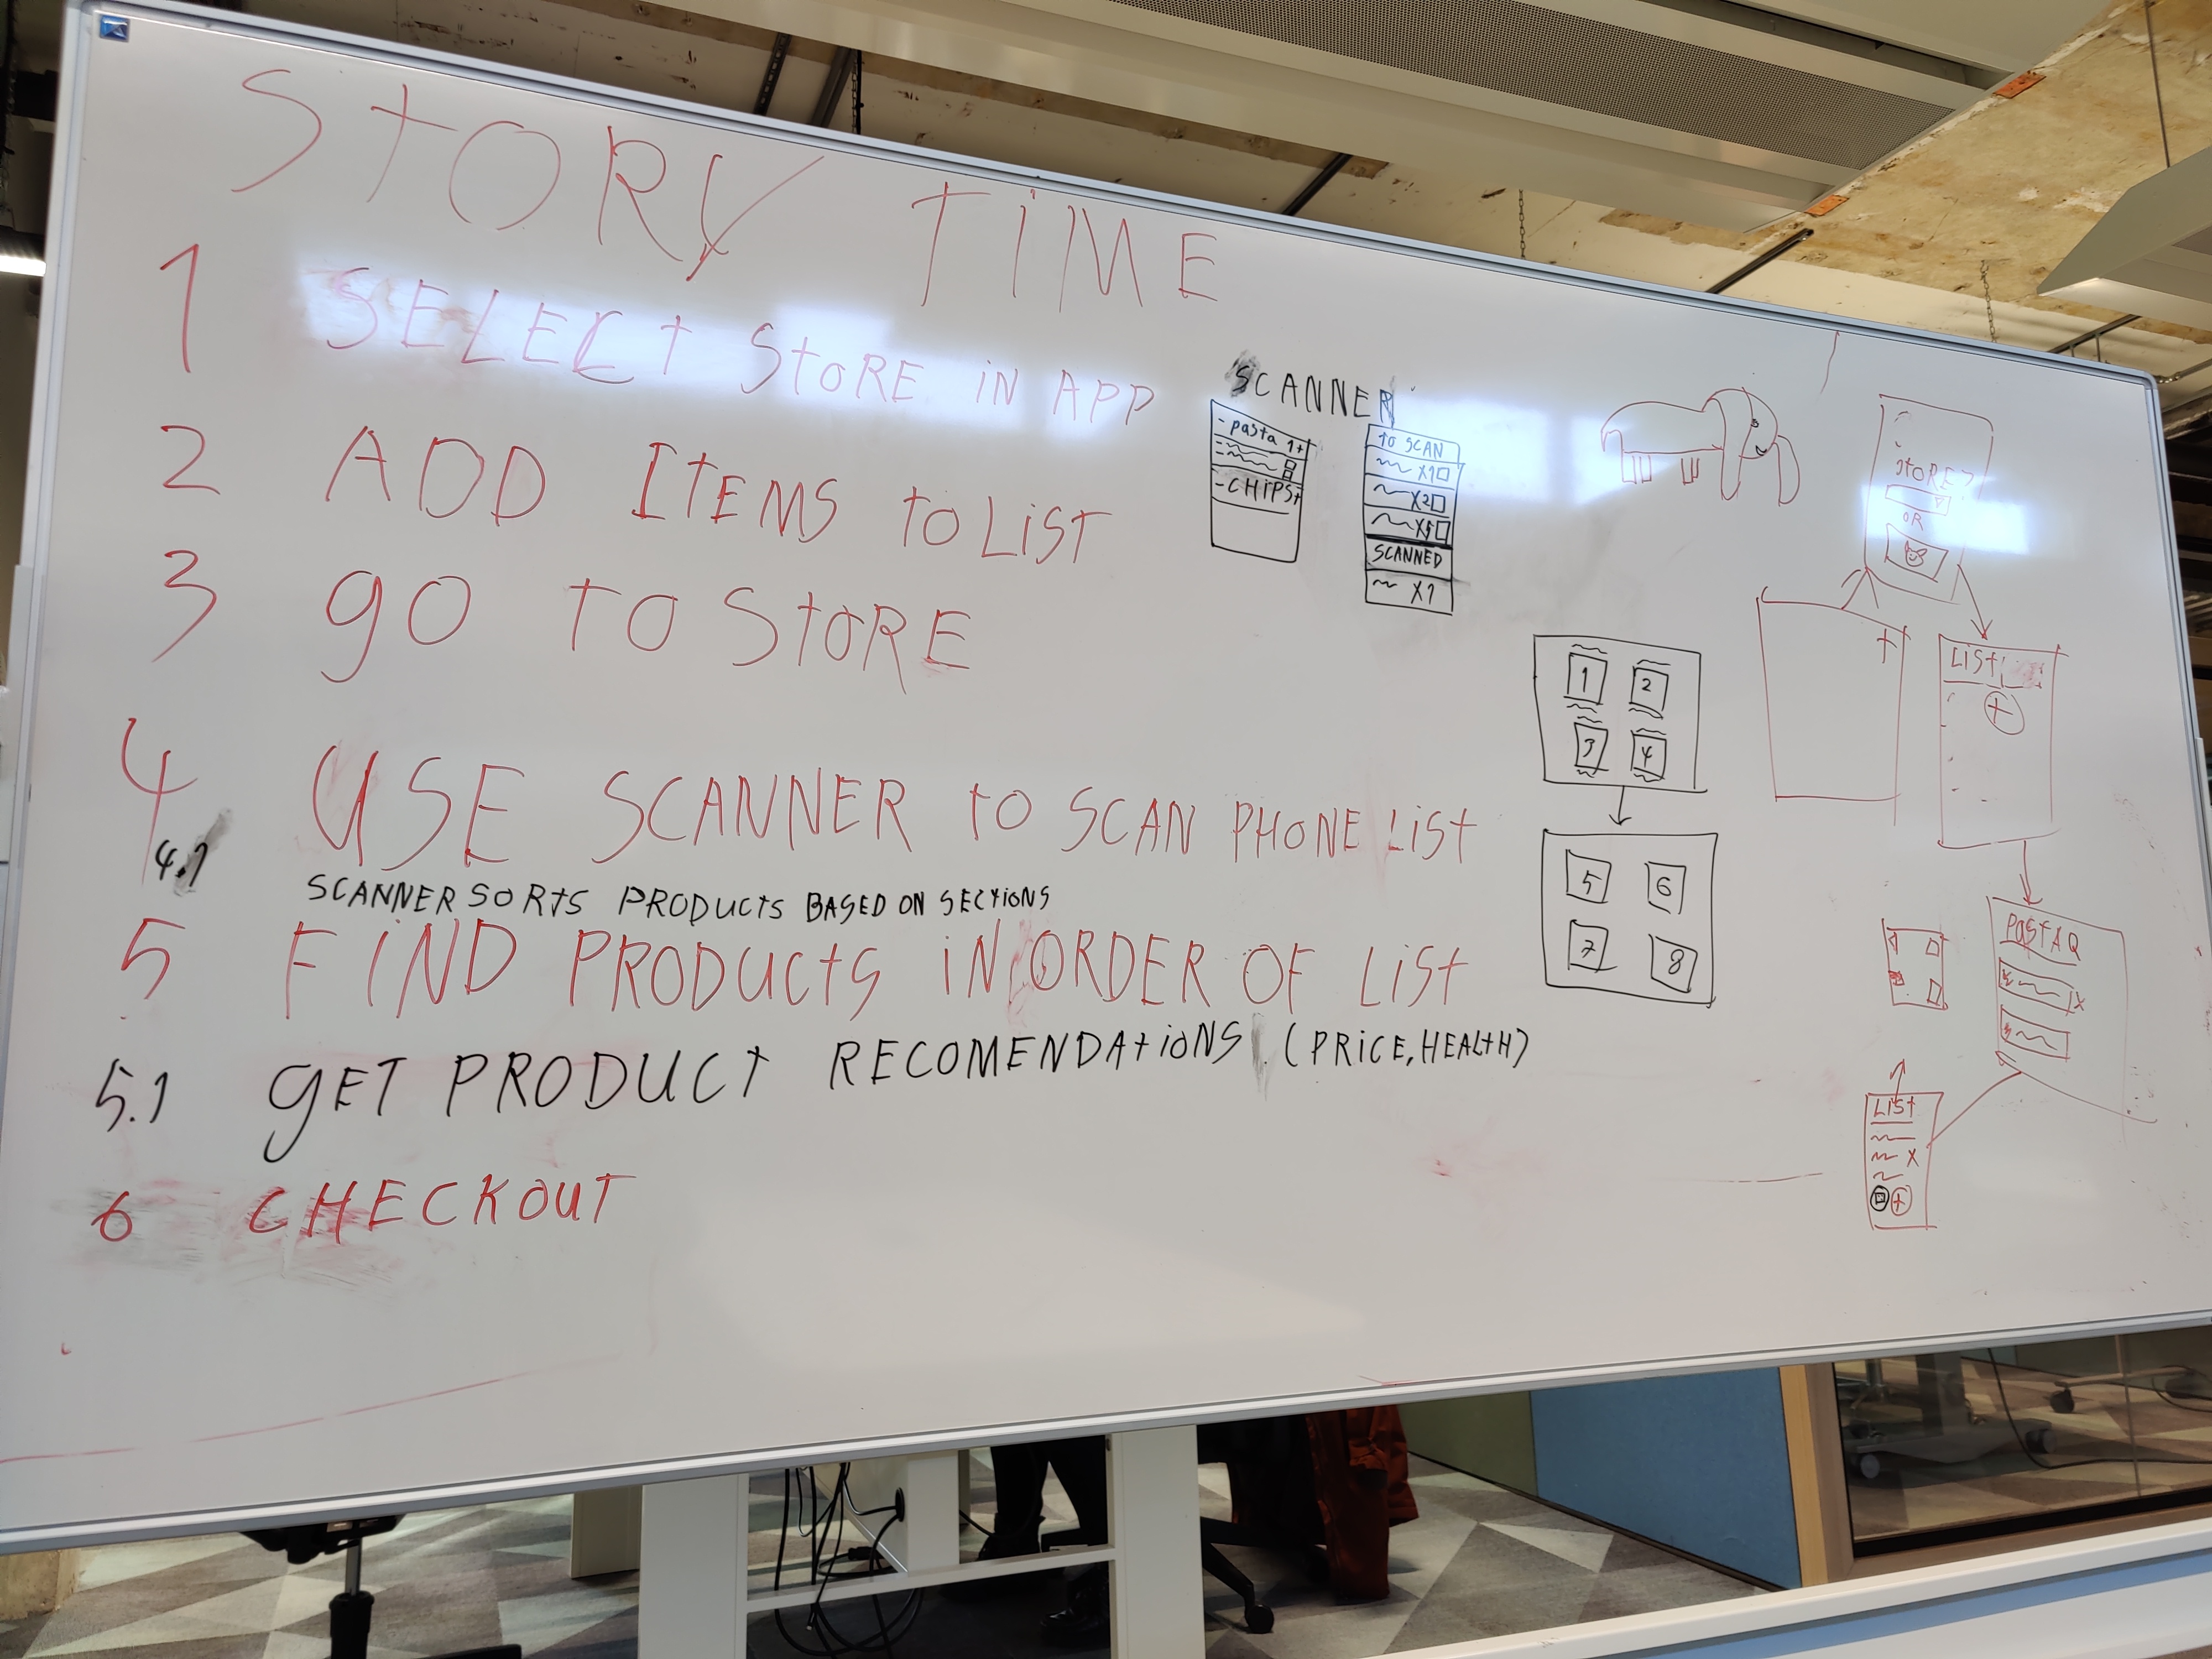 STORY TIME
1 SELECT STORE IN APP
2 ADD ITEMS TO LIST
3 GO TO STORE
4 USE SCANNER TO SCAN PHONE LIST
4.1 SCANNER SORTS PRODUCTS BASED ON SECTIONS
5 FIND PRODUCTS IN ORDER OF LIST
5.1 GET PRODUCT RECOMENDATIONS (PRICE, HEALTH)
6 CHECKOUT
SCANNER
- pasta 1+
- CHIPS+
TO SCAN
X1
X2
SCANNED
X1
1 2
3 4
5 6
7 8
STORE?
OR
+
LIST
+
PASTA Q
X
LIST
X
+